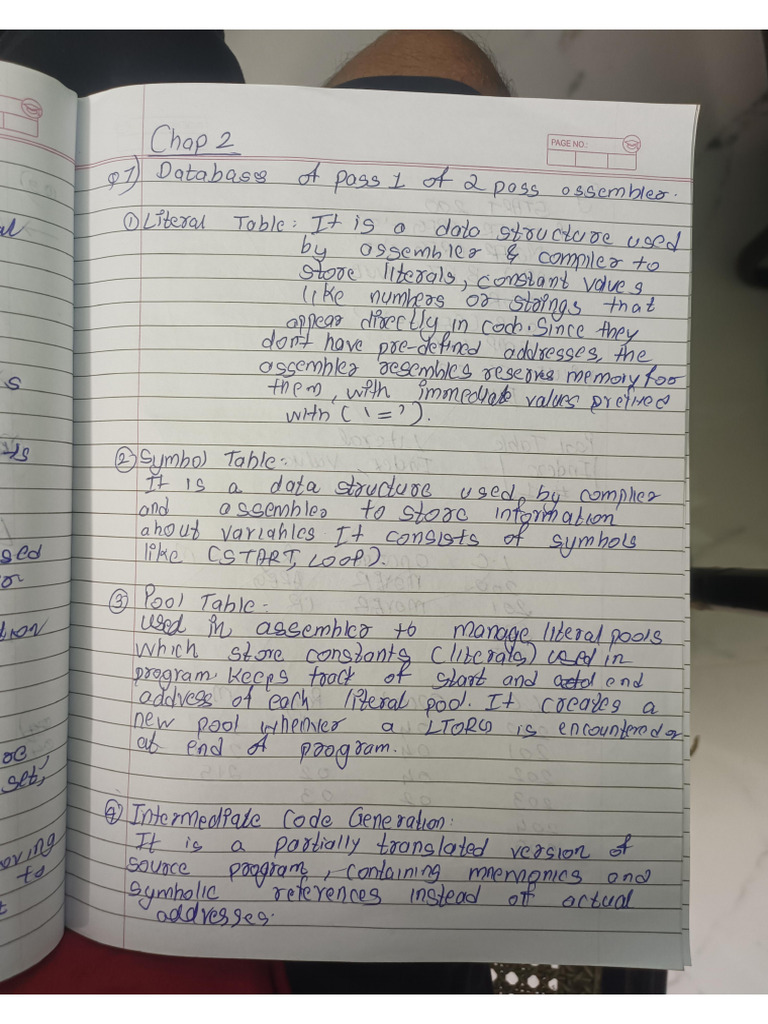 PAGE NO.:
Chap 2
Q1) Databases of pass 1 of 2 pass assembler.
① Literal Table: It is a data structure used
by assembler & compiler to
store literals, constant values
like numbers or strings that
appear directly in code. Since they
don't have pre-defined addresses, the
assembler resembles reserves memory for
them, with immediate values prefixed
with ('=').
② Symbol Table:-
It is a data structure used by complier
and assembler to store information
about variables It consists of symbols
like (START, LOOP).
③ Pool Table:-
Used in assembler to manage literal pools
which store constants (literals) used in
program. Keeps tract of start and end
address of each literal pool. It creates a
new pool whenver a LTORG is encountered or
at end of program.
④ Intermediate Code Generation:
It is a partially translated version of
source program, containing mnemonics and
symbolic references instead of actual
addresses.